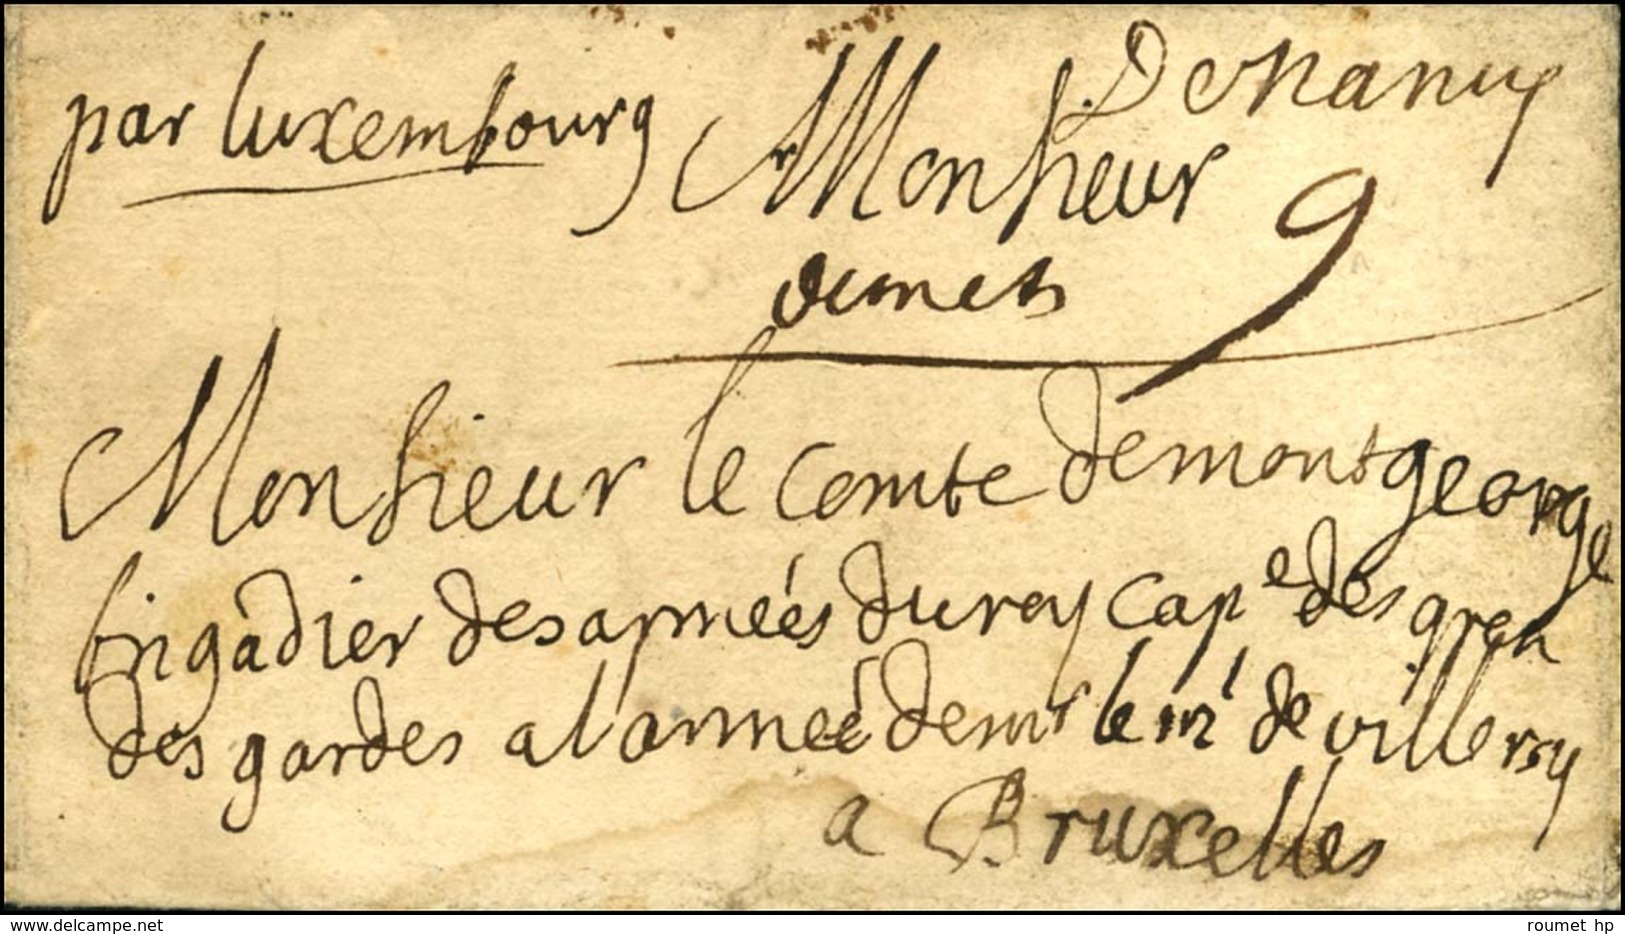 De Nancy
par luxembourg
Monsieur
9
Monsieur le comte demontgeorge
brigadier des armées du roy cap.e des gren
des gardes a l'armée de mr le m.l de villeroy
a Bruxelles
roumet hp